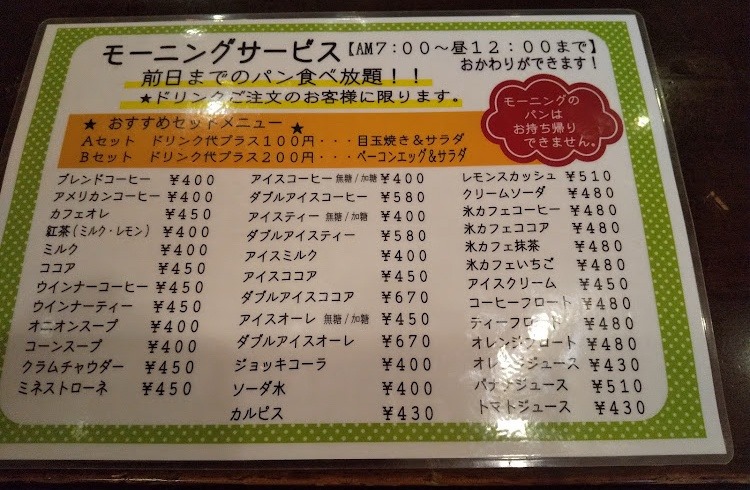 モーニングサービス【AM7：00～昼12：00まで】
おかわりができます！
前日までのパン食べ放題！！
★ドリンクご注文のお客様に限ります。
モーニングの
パンは
お持ち帰り
できません。
★ おすすめセットメニュー ★
Aセット ドリンク代プラス100円・・・目玉焼き＆サラダ
Bセット ドリンク代プラス200円・・・ベーコンエッグ＆サラダ
ブレンドコーヒー ¥400
アメリカンコーヒー ¥400
カフェオレ ¥450
紅茶（ミルク・レモン） ¥400
ミルク ¥400
ココア ¥450
ウインナーコーヒー ¥450
ウインナーティー ¥450
オニオンスープ ¥400
コーンスープ ¥400
クラムチャウダー ¥450
ミネストローネ ¥450
アイスコーヒー 無糖/加糖 ¥400
ダブルアイスコーヒー ¥580
アイスティー 無糖/加糖 ¥400
ダブルアイスティー ¥580
アイスミルク ¥400
アイスココア ¥450
ダブルアイスココア ¥670
アイスオーレ 無糖/加糖 ¥450
ダブルアイスオーレ ¥670
ジョッキコーラ ¥400
ソーダ水 ¥400
カルピス ¥430
レモンスカッシュ ¥510
クリームソーダ ¥480
氷カフェコーヒー ¥480
氷カフェココア ¥480
氷カフェ抹茶 ¥480
氷カフェいちご ¥480
アイスクリーム ¥450
コーヒーフロート ¥480
ティーフロート ¥480
オレンジフロート ¥480
オレンジジュース ¥430
バナナジュース ¥510
トマトジュース ¥430